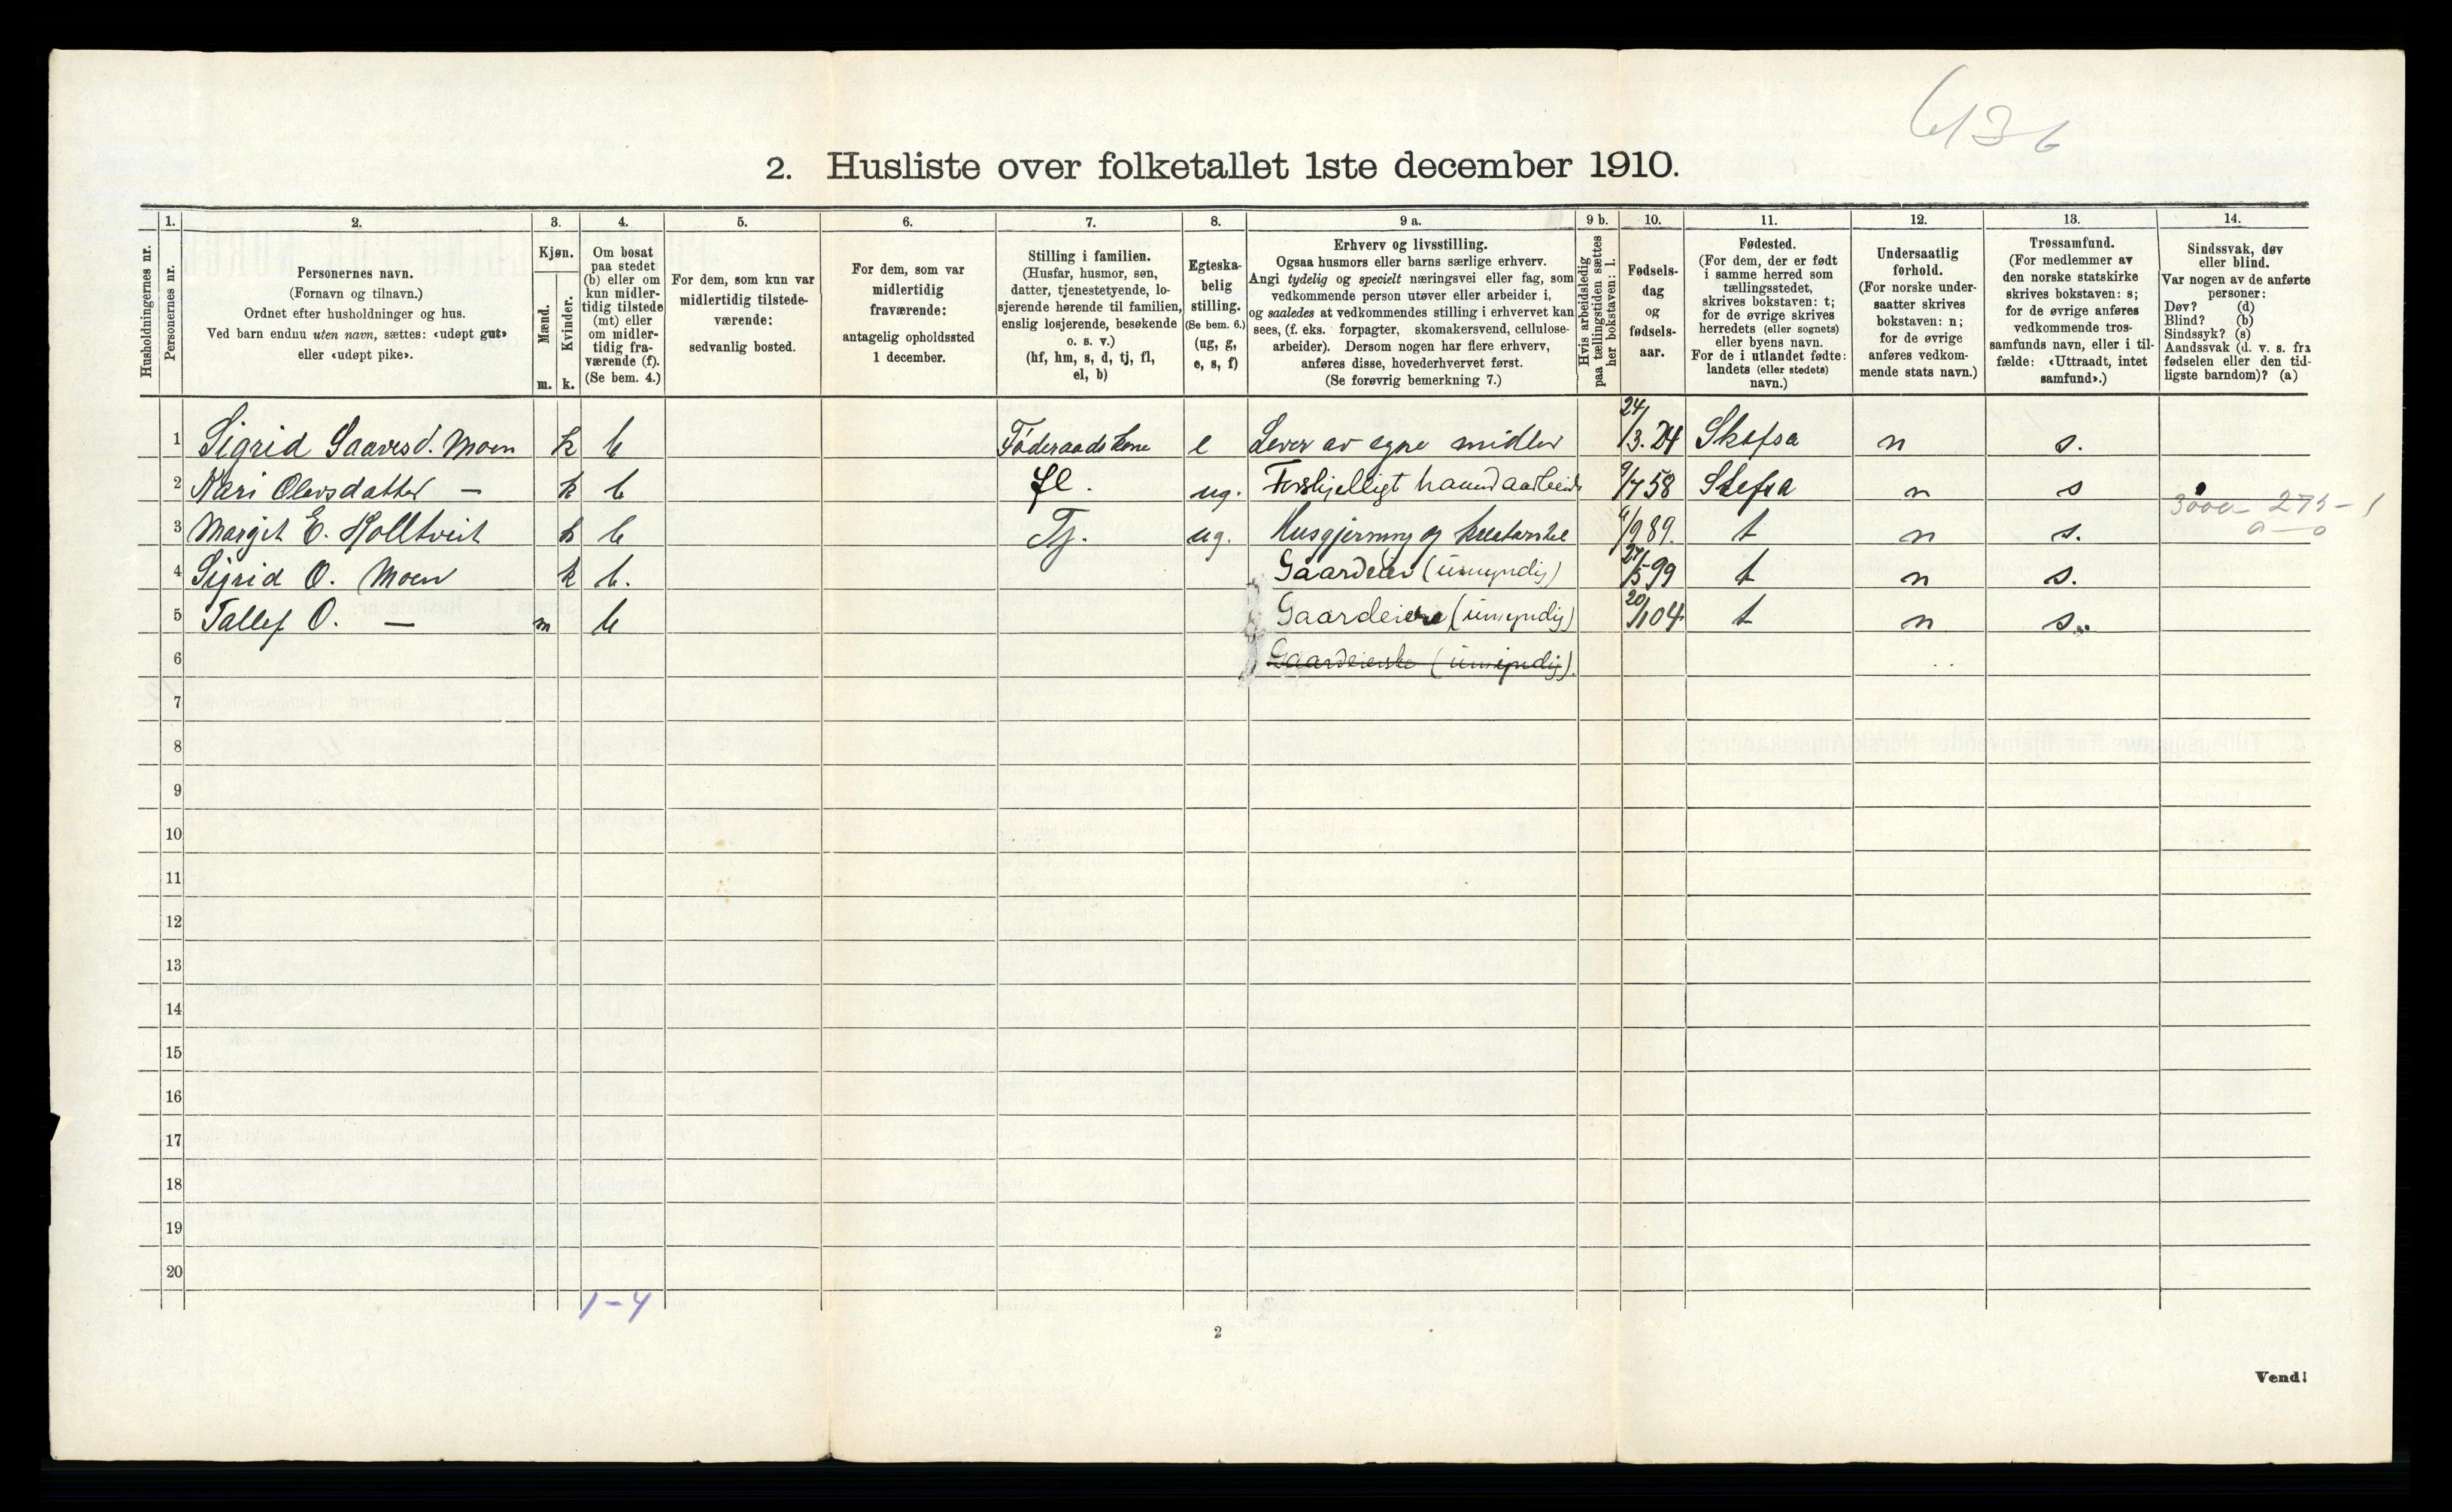 6136
2. Husliste over folketallet 1ste december 1910.
Husholdningernes nr.
1.
Personernes nr.
2.
Personernes navn.
(Fornavn og tilnavn.)
Ordnet efter husholdninger og hus.
Ved barn endnu uten navn, sættes: «udøpt gut»
eller «udøpt pike».
3.
Kjøn.
Mænd.
m.
Kvinder.
k.
4.
Om bosat
paa stedet
(b) eller om
kun midler-
tidig tilstede
(mt) eller
om midler-
tidig fra-
værende (f).
(Se bem. 4.)
5.
For dem, som kun var
midlertidig tilstede-
værende:
sedvanlig bosted.
6.
For dem, som var
midlertidig
fraværende:
antagelig opholdssted
1 december.
7.
Stilling i familien.
(Husfar, husmor, søn,
datter, tjenestetyende, lo-
sjerende hørende til familien,
enslig losjerende, besøkende
o. s. v.)
(hf, hm, s, d, tj, fl,
el, b)
8.
Egteska-
belig
stilling.
(Se bem. 6.)
(ug, g,
e, s, f)
9 a.
Erhverv og livsstilling.
Ogsaa husmors eller barns særlige erhverv.
Angi tydelig og specielt næringsvei eller fag, som
vedkommende person utøver eller arbeider i,
og saaledes at vedkommendes stilling i erhvervet kan
sees, (f. eks. forpagter, skomakersvend, cellulose-
arbeider). Dersom nogen har flere erhverv,
anføres disse, hovederhvervet først.
(Se forøvrig bemerkning 7.)
9 b.
Hvis arbeidsledig
paa tællingstiden sættes
her bokstaven: l.
10.
Fødsels-
dag
og
fødsels-
aar.
11.
Fødested.
(For dem, der er født
i samme herred som
tællingsstedet,
skrives bokstaven: t;
for de øvrige skrives
herredets (eller sognets)
eller byens navn.
For de i utlandet fødte:
landets (eller stedets)
navn.)
12.
Undersaatlig
forhold.
(For norske under-
saatter skrives
bokstaven: n;
for de øvrige
anføres vedkom-
mende stats navn.)
13.
Trossamfund.
(For medlemmer av
den norske statskirke
skrives bokstaven: s;
for de øvrige anføres
vedkommende tros-
samfunds navn, eller i til-
fælde: «Uttraadt, intet
samfund».)
14.
Sindssvak, døv
eller blind.
Var nogen av de anførte
personer:
Døv? (d)
Blind? (b)
Sindssyk? (s)
Aandssvak (d. v. s. fra
fødselen eller den tid-
ligste barndom)? (a)
1 Sigrid Saavesd. Moen k b Føderaadskone e Lever av egne midler 24/3.24 Skafsa n s.
2 Kari Olavsdatter — k b fl. ug. Forskjelligt haandarbeide 9/7 58 Skafsa n s
3 Margit E. Holltveit k b Tj. ug. Husgjerning og 4/9 89. t n s.
4 Sigrid O. Moen k b. Gaardeier (umyndig) 27/5 99 t n s.
5 Tallef O. — m b Gaardeiere (umyndig) 20/1 04 t n s.
6 Gaardeierske (umyndig).
7
8
9
10
11
12
13
14
15
16
17
18
19
20
1-4
2
Vend!